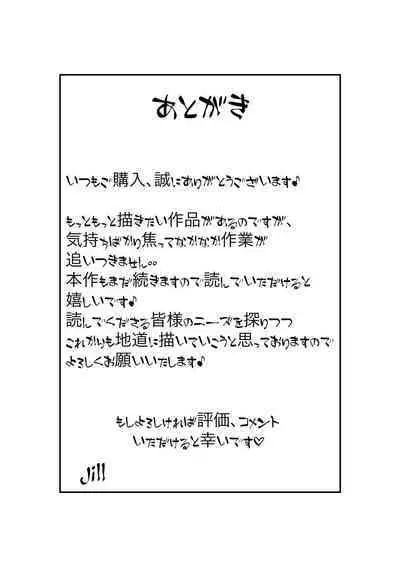 あとがき
いつもご購入、誠にありがとうございます♪
もっともっと描きたい作品があるのですが、
気持ちばかり焦ってなかなか作業が
追いつきません。。
本作もまだ続きますので読んでいただけると
嬉しいです♪
読んでくださる皆様のニーズを探りつつ
これからも地道に描いていこうと思っておりますので
よろしくお願いいたします♪
もしよろしければ評価、コメント
いただけると幸いです♡
Jill